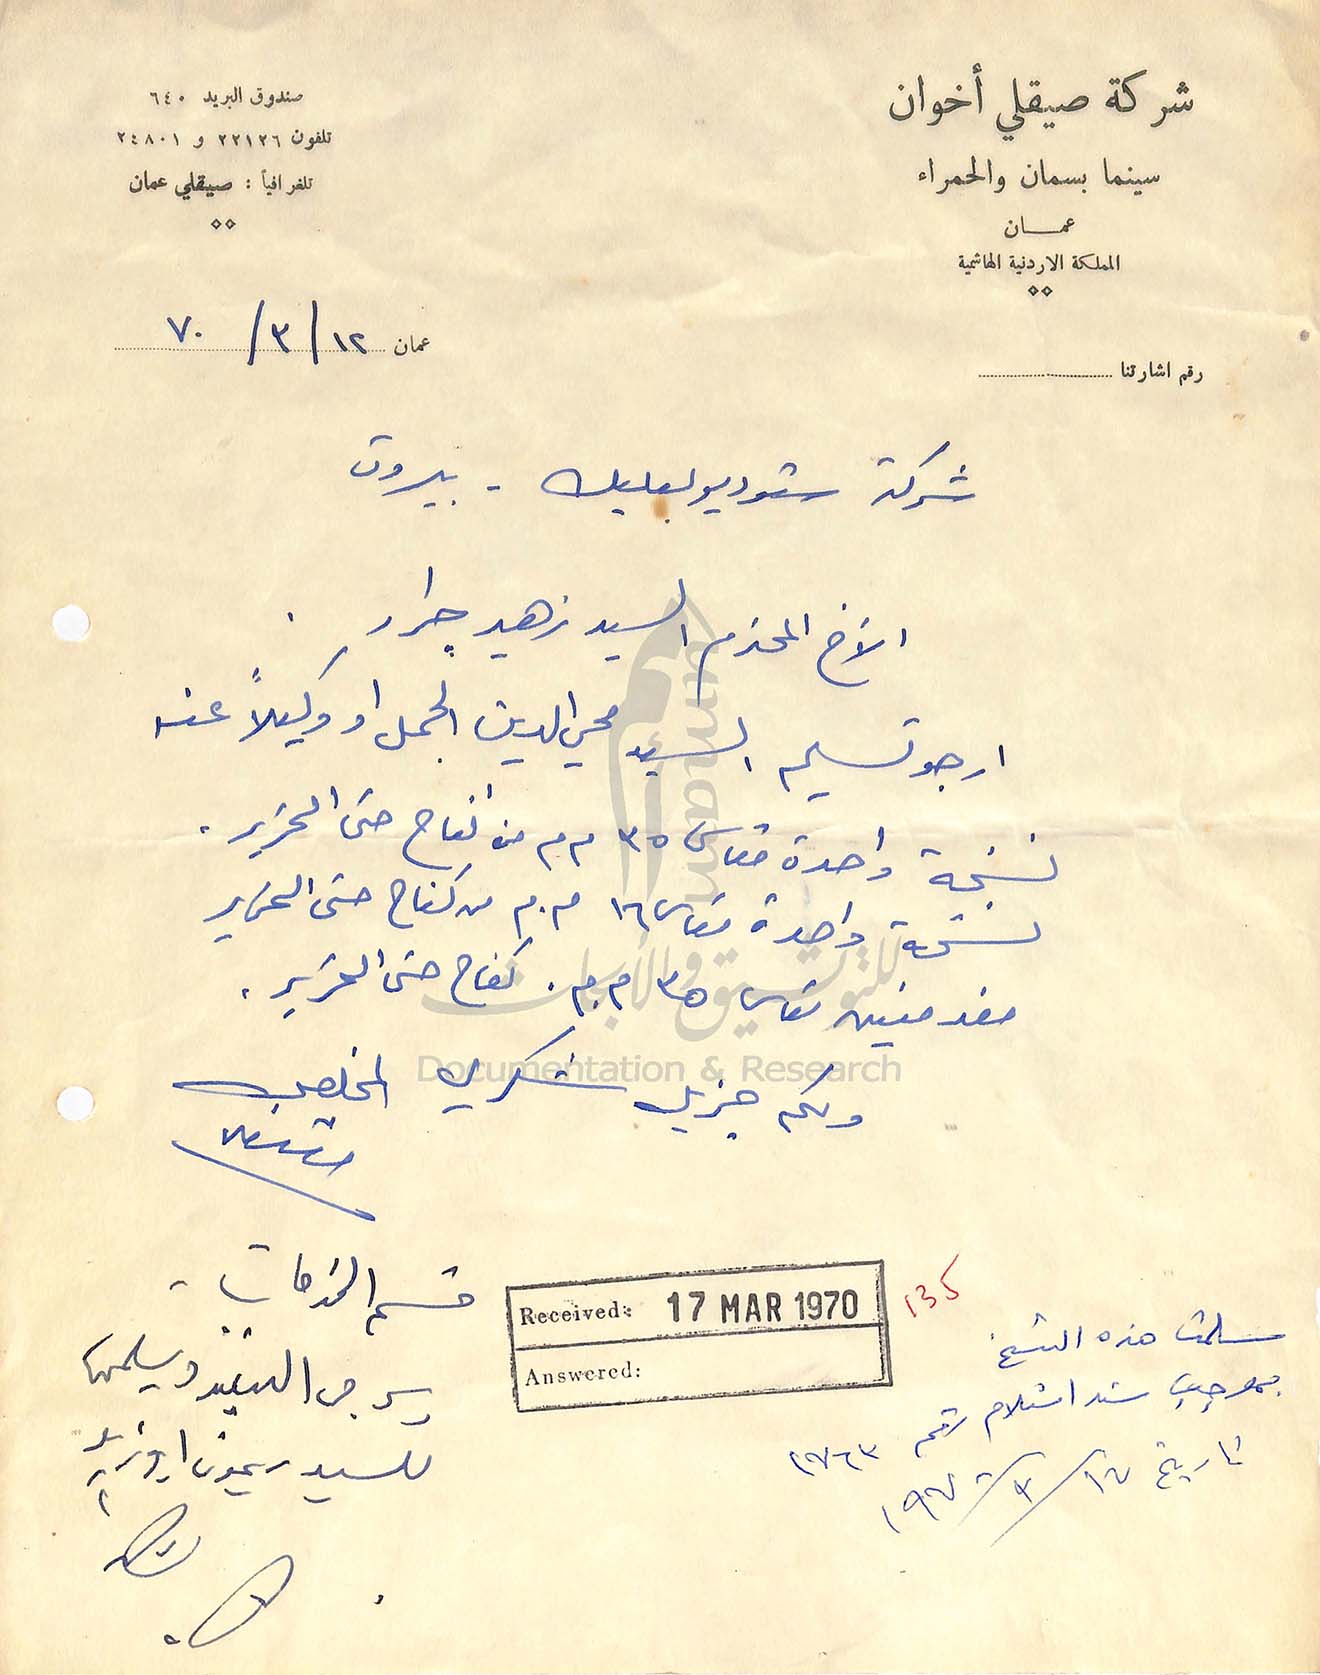 شركة صيقلي أخوان
سينما بسمان والحمراء
عمان
المملكة الاردنية الهاشمية
صندوق البريد ٦٤٠
تلفون ٢٢١٢٦ و ٢٤٨٠١
تلغرافياً : صيقلي عمان
عمان ١٢/٣/٧٠
رقم اشارتنا
شركة ستوديو بعلبك - بيروت
الأخ المحترم السيد زهير جرار
ارجو تسليم السيد محي الدين الجمل او وكيلاً عنه
نسخة واحدة مقاس ٣٥ م.م من كفاح حتى التحرير .
نسخة واحدة مقاس ١٦ م.م من كفاح حتى التحرير
مقدمتين مقاس ٣٥ م.م. كفاح حتى التحرير .
ولكم جزيل شكري المخلص
قسم الخدمات -
يرجى التقيد وتسليمها
للسيد ريمون
Received: 17 MAR 1970
Answered:
135
سلمت هذه النسخ
بموجب سند استلام رقم ٢٧٦٣
تاريخ ١٧/٣/١٩٧٠
Umam
للتوثيق والأبحاث
Documentation & Research